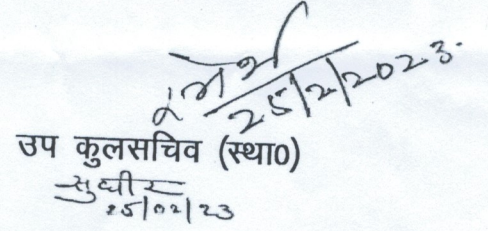 25/2/2023.
उप कुलसचिव (स्था0)
सुधीर
25/02/23